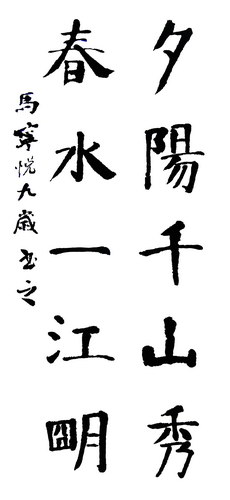 夕陽千山秀
春水一江明
馬寧悅九歲書之